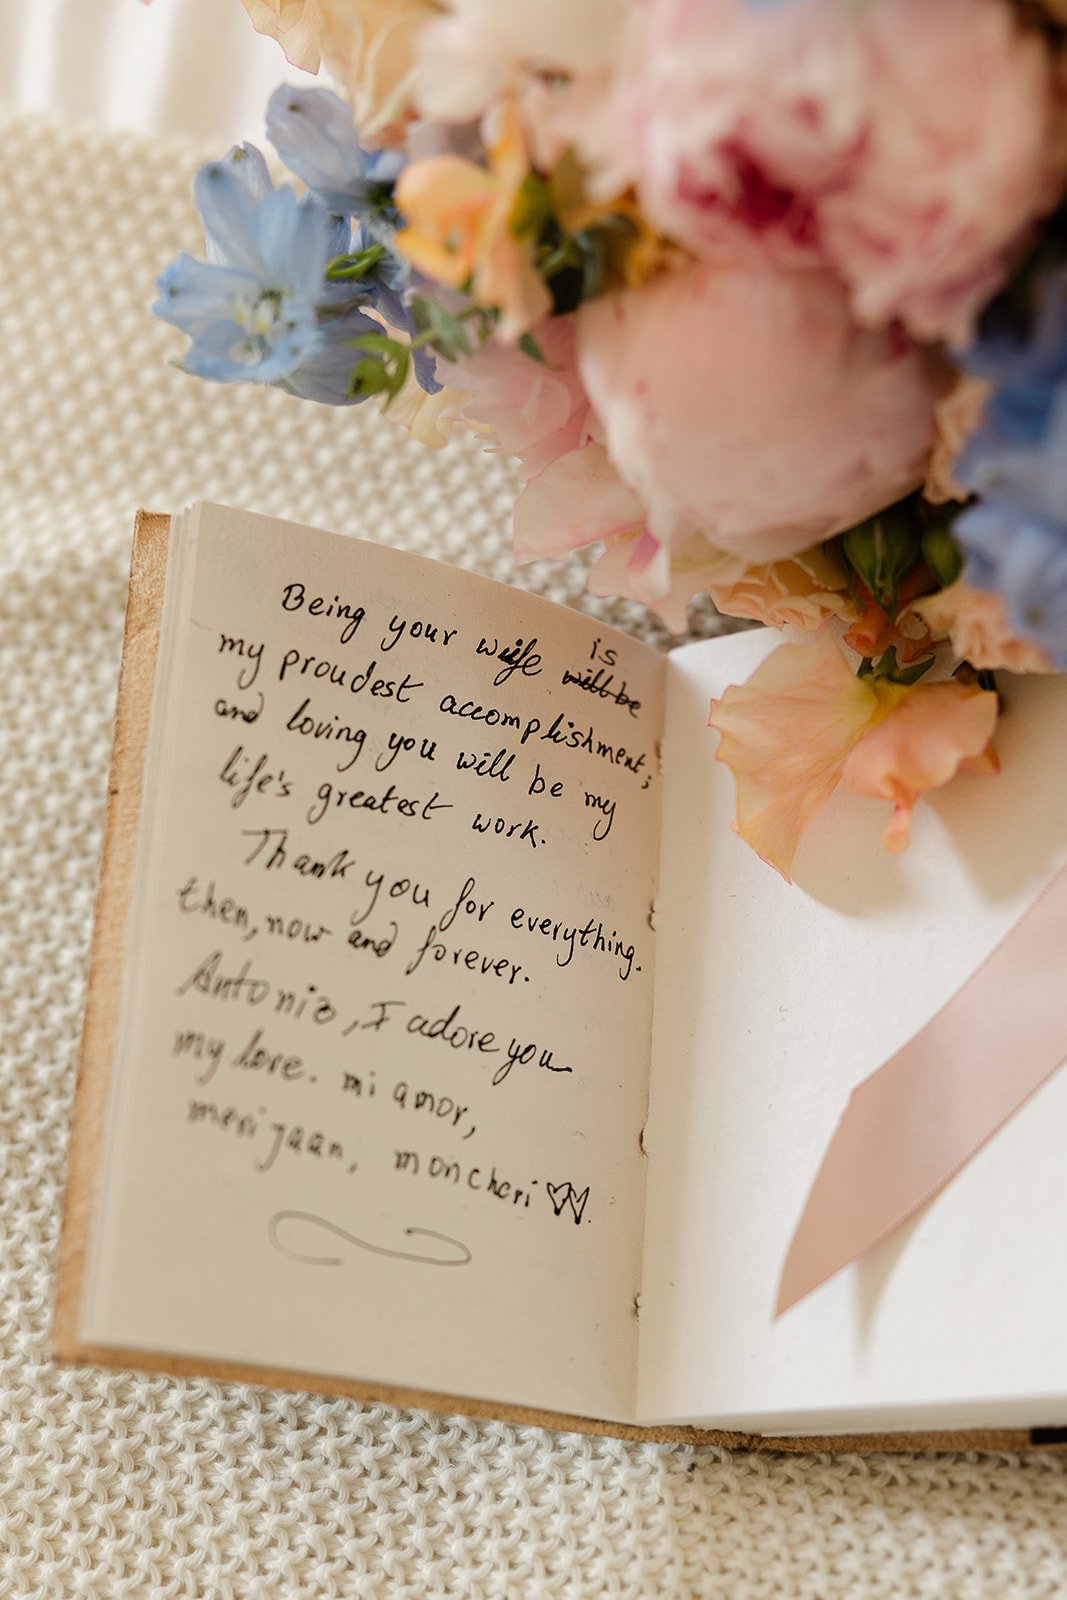 Being your wife is
my proudest accomplishment;
and loving you will be my
life's greatest work.
Thank you for everything.
then, now and forever.
Antonio, I adore you
my love. mi amor,
meri jaan, mon cheri